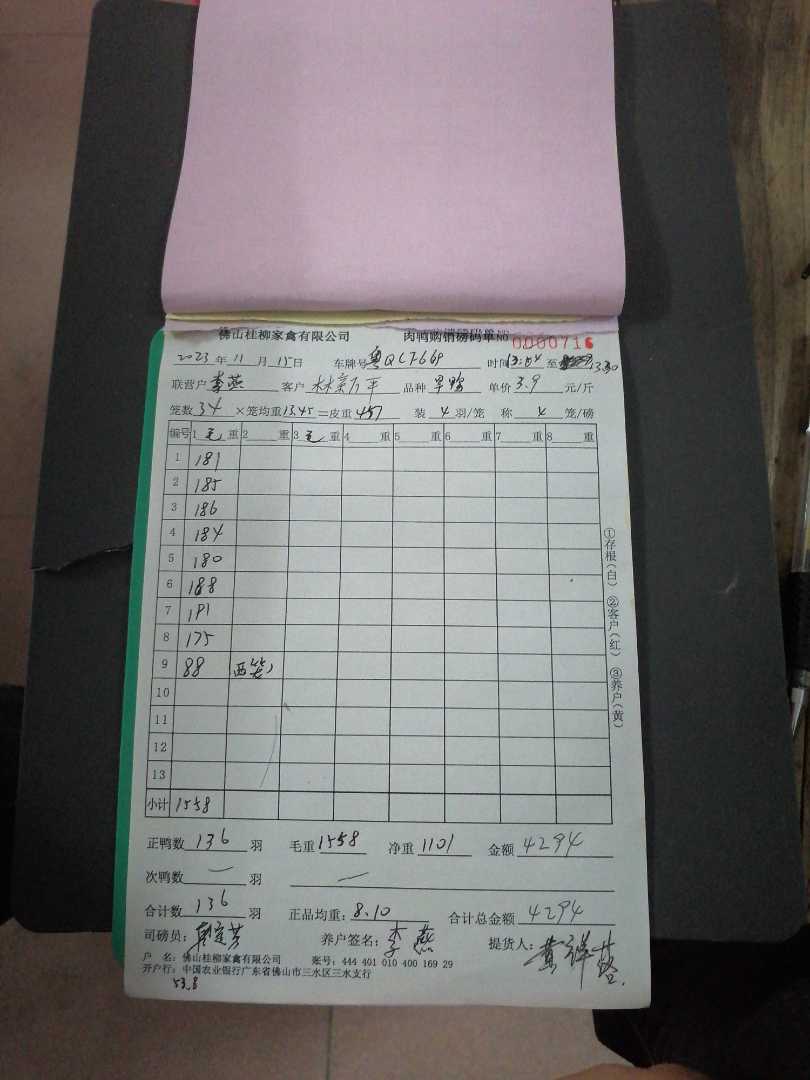 佛山桂柳家禽有限公司 肉鸭购销磅码单 No 0000716
2023年11月15日 车牌号 粤QCT669 时间 13:04 至 13:30
联营户 李燕 客户 林新万平 品种 旱鸭 单价 3.9 元/斤
笼数 34 ×笼均重 13.45 =皮重 457 装 4 羽/笼 称 4 笼/磅
编号 1 毛 重 2 重 3 毛 重 4 重 5 重 6 重 7 重 8 重
1 181
2 185
3 186
4 184
5 180
6 188
7 191
8 175
9 88 西笼
10
11
12
13
小计 1558
①存根(白) ②客户(红) ③养户(黄)
正鸭数 136 羽 毛重 1558 净重 1101 金额 4294
次鸭数 一 羽 一
合计数 136 羽 正品均重: 8.10 合计总金额 4294
司磅员: 养户签名: 李燕 提货人: 黄
户 名: 佛山桂柳家禽有限公司 账号: 444 401 010 400 169 29
开户行: 中国农业银行广东省佛山市三水区三水支行
53.8